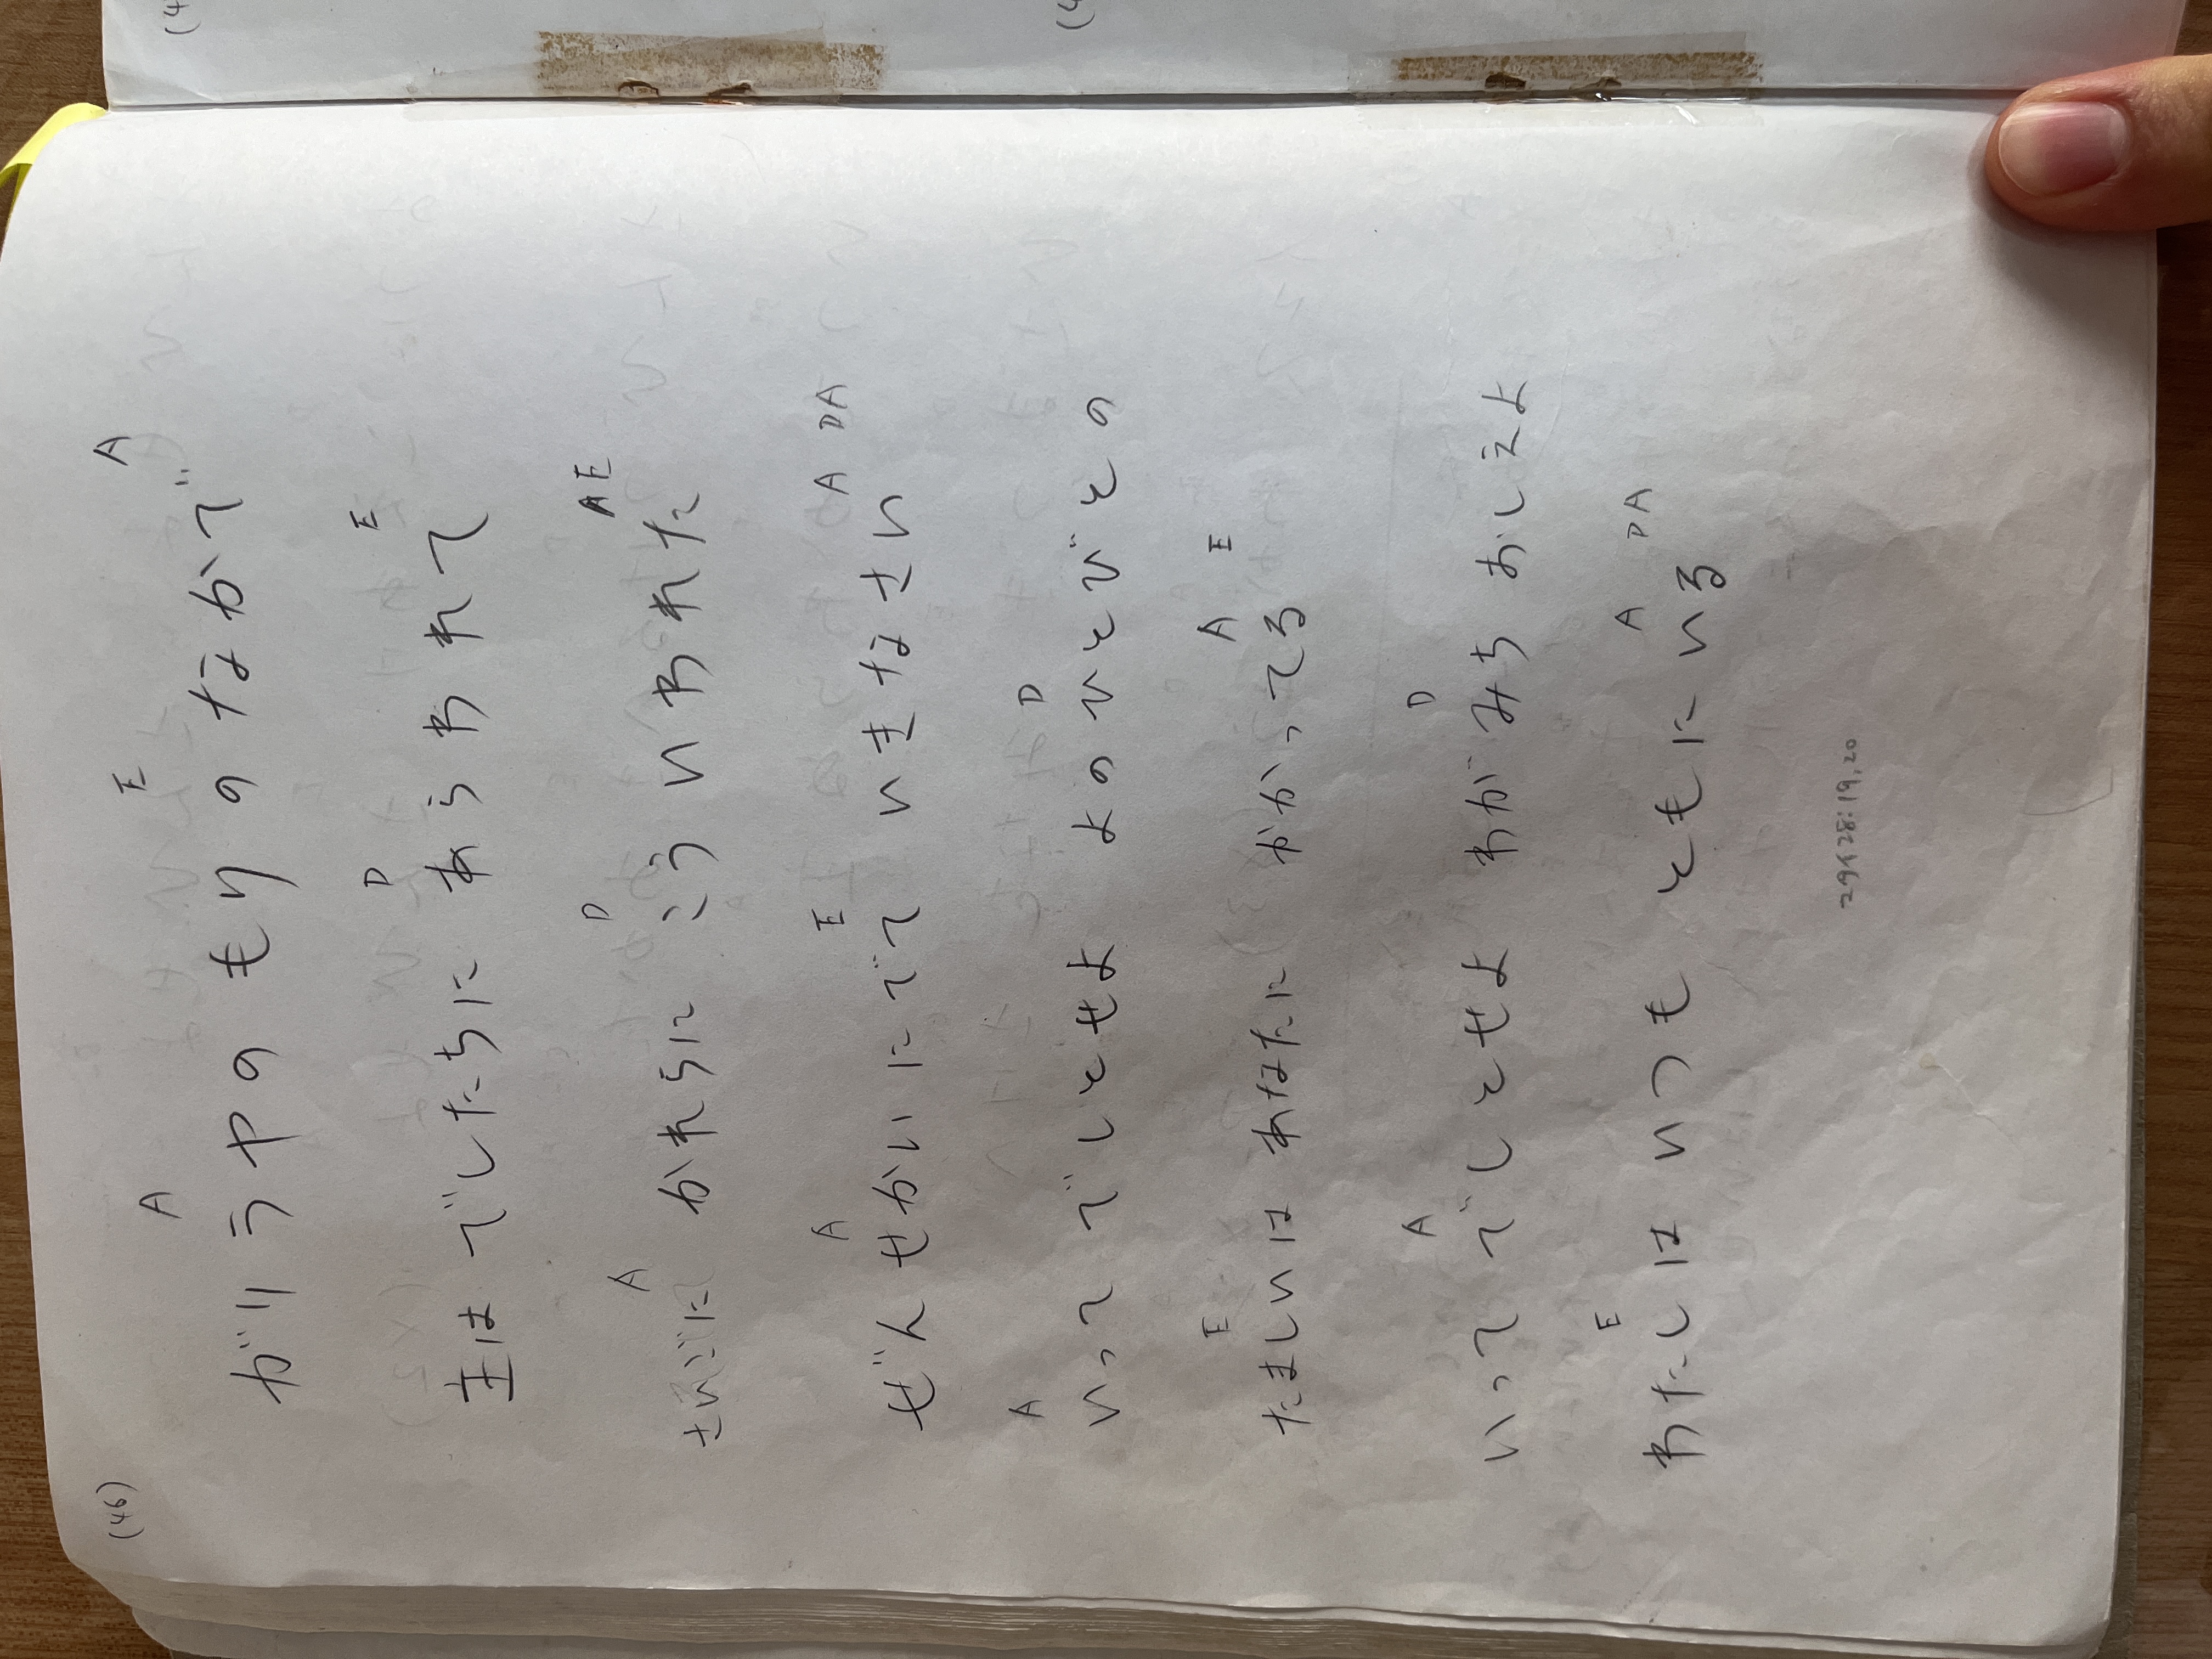 (46)
A E A
がリラヤの もりの なかで
D E
主は でしたちに あらわれて
A D A E
さいごに かれらに こういわれた
A E A DA
ぜんせかいにでて いきなさい
A D
いって でしとせよ よのひとびとの
E A E
たましいは あなたに かかってる
A D
いって でしとせよ わがみち おしえよ
E A DA
わたしは いつも ともにいる
マタイ28:19,20